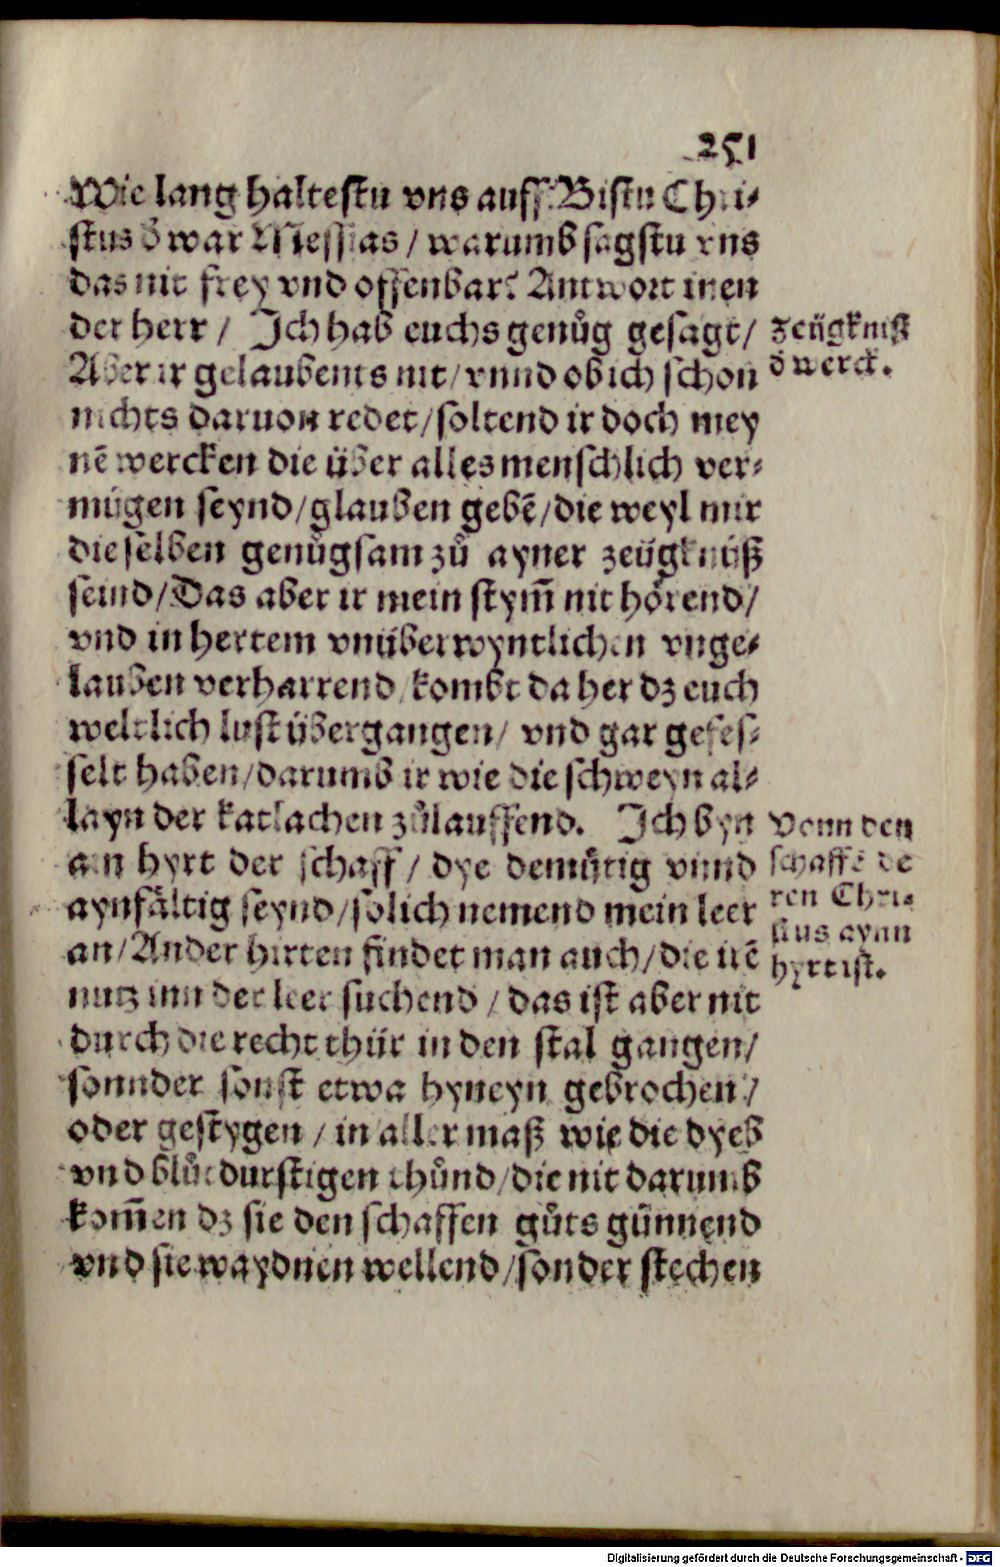 251
Wie lang haltestu vns auff? Bistu Chri⸗
stus d̕ war Messias / warumb sagstu vns
das nit frey vnd offenbar? Antwort inen
der herr / Ich hab euchs genůg gesagt /
Aber ir gelaubents nit / vnnd ob ich schon
nichts daruon redet / soltend ir doch mey
nē wercken die über alles menschlich ver⸗
mügen seynd / glauben gebē / die weyl mir
die selben genůgsam zů ayner zeügknüß
seind / Das aber ir mein stym̄ nit hörend /
vnd in hertem vnüberwyntlichen vnge⸗
lauben verharrend / kombt da her dz euch
weltlich lust übergangen / vnd gar gefes⸗
selt haben / darumb ir wie die schweyn al⸗
layn der katlachen zůlauffend. Ich byn
ain hyrt der schaff / dye demůtig vnnd
aynfältig seynd / solich nemend mein leer
an / Ander hirten findet man auch / die irē
nutz inn der leer suchend / das ist aber nit
durch die recht thür in den stal gangen /
sonnder sonst etwa hyneyn gebrochen /
oder gestygen / in aller maß wie die dyeb
vnd blůtdurstigen thůnd / die nit darumb
kom̄en dz sie den schaffen gůts günnend
vnd sie waydnen wellend / sonder stechen
zeügknist
d̕ werck.
Vonn den
schaffē de
ren Chri⸗
stus ayn
hyrt ist.
Digitalisierung gefördert durch die Deutsche Forschungsgemeinschaft - DFG